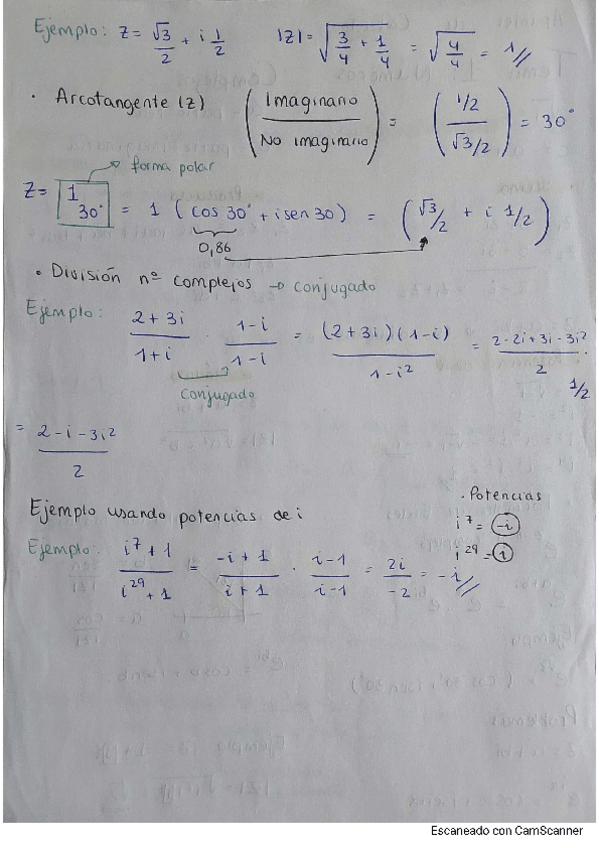 Ejemplo: Z = √3/2 + i 1/2   |Z| = √(3/4 + 1/4) = √(4/4) = 1//
· Arcotangente (z) (Imaginario / No imaginario) = (1/2 / √3/2) = 30°
forma polar
Z = 1 30° = 1 (cos 30° + i sen 30) = (√3/2 + i 1/2)
0,86
· División nº complejos → conjugado
Ejemplo: (2 + 3i)/(1 + i) · (1 - i)/(1 - i) = (2 + 3i)(1 - i)/(1 - i²) = (2 - 2i + 3i - 3i²)/2
conjugado
1/2
= (2 - i - 3i²)/2
Ejemplo usando potencias de i
· Potencias
i⁷ = -i
i²⁹ = i
Ejemplo: (i⁷ + 1)/(i²⁹ + 1) = (-i + 1)/(i + 1) · (i - 1)/(i - 1) = 2i/-2 = -i//
Escaneado con CamScanner